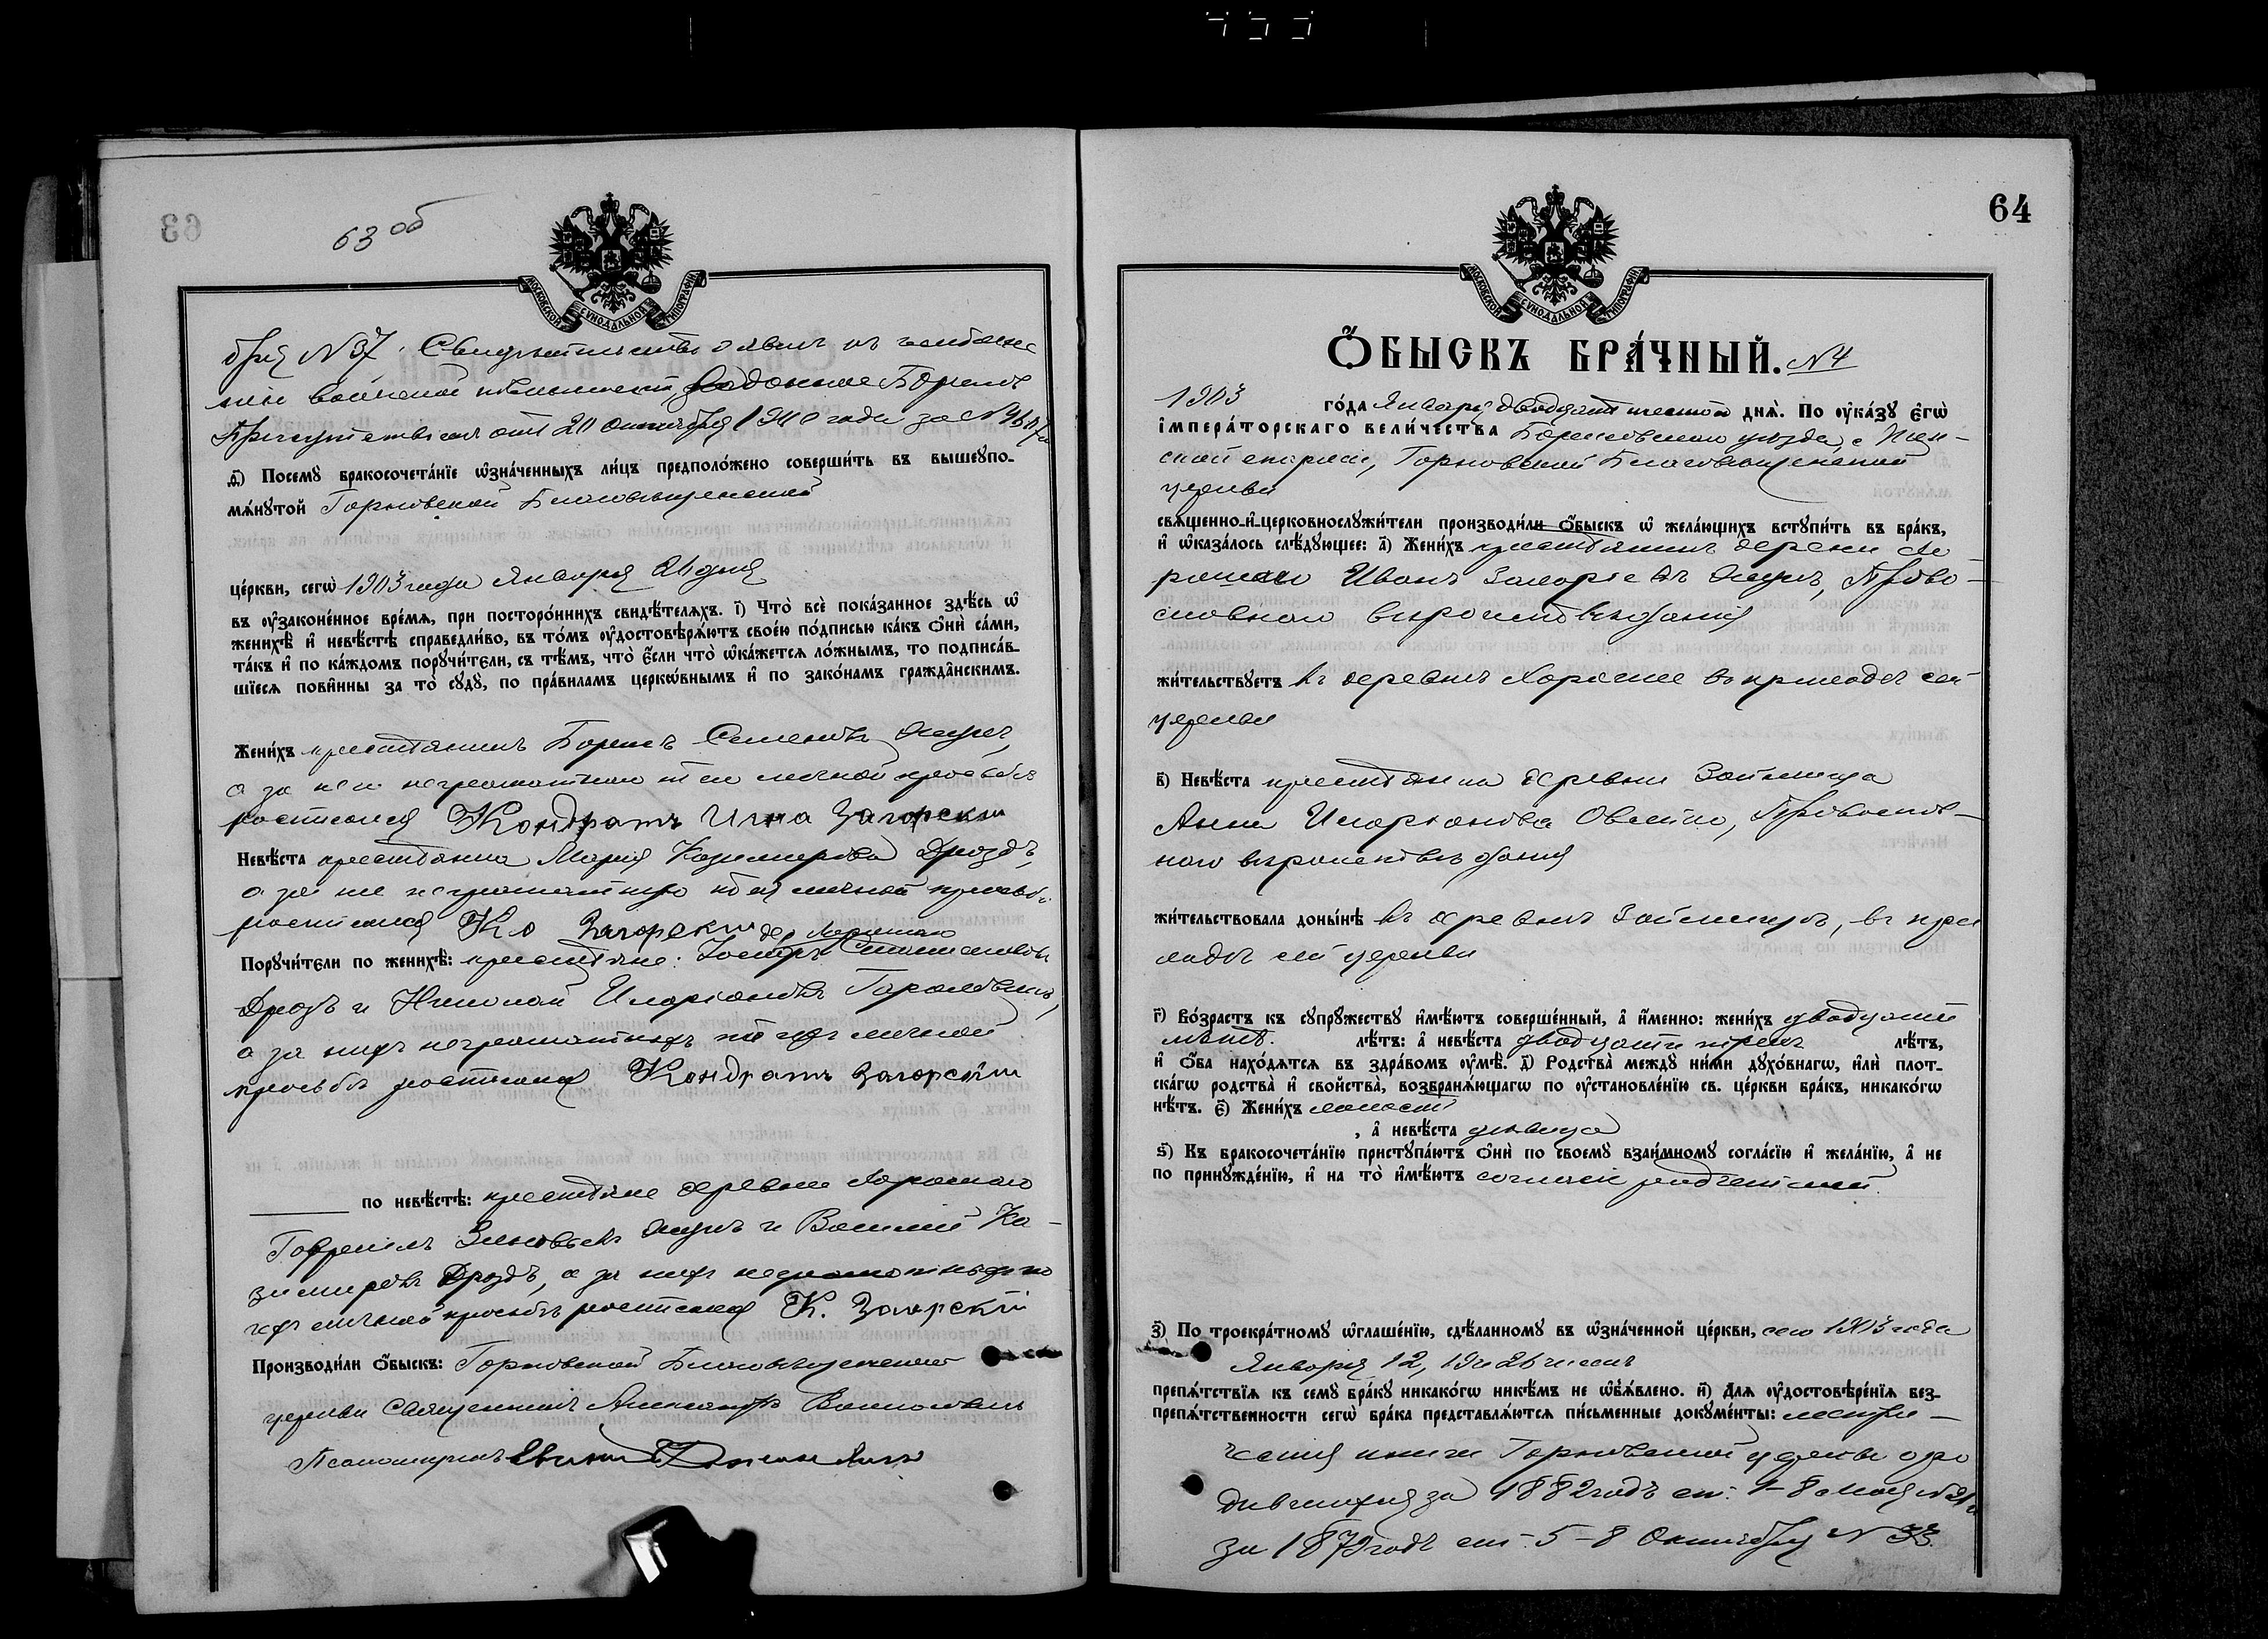 63 об
МОСКОВСКОЙ СУНОДАЛЬНОЙ ТИПОГРАФІИ
бря N 37. Свидѣтельство о явкѣ къ
воинской повинности,
Присутствіемъ отъ 20 Октября 1900 года за N
д҃) Посему бракосочетаніе ѡзначенныхъ лицъ предположено совершить въ вышеупо-
мянутой Горковской Благовѣщенской
церкви, сегѡ 1903 года Января 26 дня
въ узаконенное время, при постороннихъ свидѣтеляхъ. і҃) Что всѐ показанное здѣсь ѡ
женихѣ и невѣстѣ справедливо, въ томъ удостовѣряютъ своею подписью какъ ѻни сами,
такъ и по каждомъ поручители, съ тѣмъ, что если что ѡкажется ложнымъ, то подписав-
шіеся повинны за то суду, по правиламъ церковнымъ и по законамъ гражданскимъ.
Женихъ крестьянинъ Борисъ Семеновъ Якуш,
а за него неграмотнаго по его личной просьбѣ
росписался Кондратъ Загорскій
Невѣста крестьянка Марія Казимирова Дроздъ,
а за нее неграмотную по ея личной просьбѣ
росписался К Загорскій
дер Хорошаго
Поручители по женихѣ: крестьяне:
Дроздъ и Николай Иларіоновъ
а за нихъ неграмотныхъ по ихъ личной
просьбѣ росписался Кондратъ Загорскій
по невѣстѣ: крестьяне деревни Хорошаго
Гавріилъ Зиновьевъ и Василій Ка-
зимировъ Дроздъ, а за нихъ неграмотныхъ по
ихъ личной просьбѣ росписался К. Загорскій
Производили ѻбыскъ: Горковской Благовѣщенской
церкви Священникъ Александръ
Псаломщикъ
64
МОСКОВСКОЙ СУНОДАЛЬНОЙ ТИПОГРАФІИ
ѺБЫСКЪ БРАЧНЫЙ. N 4
1903 года Января двадцать шестого дня. По указу егѡ
императорскаго величества уѣзда, Мин-
ской епархіи, Горковской Благовѣщенской
церкви
священно-и-церковнослужители производили ѻбыскъ ѡ желающихъ вступить въ бракъ,
и ѡказалось слѣдующее: а҃) Женихъ крестьянинъ деревни Хо-
рошаго Иванъ Православ-
славнаго вѣроисповѣданія
жительствуетъ въ деревнѣ Хорошее въ приходѣ сей
церкви
в҃) Невѣста крестьянка деревни Займища
Анна Иларіонова Овсейко, Православ-
наго вѣроисповѣданія
жительствовала донынѣ въ деревнѣ Займищѣ, въ при
ходѣ сей церкви
г҃) Возрастъ къ супружеству имѣютъ совершенный, а именно: женихъ двадцати
лѣтъ. лѣтъ: а невѣста двадцати трехъ лѣтъ,
и ѻба находятся въ здравомъ умѣ. д҃) Родства между ними духовнагѡ, или плот-
скагѡ родства и свойства, возбраняющагѡ по установленію св. церкви бракъ, никакогѡ
нѣтъ. є҃) Женихъ холостъ
, а невѣста дѣвица
ѕ҃) Къ бракосочетанію приступаютъ ѻни по своему взаимному согласію и желанію, а не
по принужденію, и на то имѣютъ согласіе родителей.
з҃) По троекратному ѡглашенію, сдѣланному въ ѡзначенной церкви, сего 1903 года
Января 12, 19 и 26 чиселъ
препятствія къ сему браку никакогѡ никѣмъ не ѡбъявлено. и҃) Для удостовѣренія без-
препятственности сегѡ брака представляются письменные документы: метри-
ческія книги Горковской церкви о ро
дившихся за 1882 годъ ст. 7-8 Мая N
за 1879 годъ ст. 5-8 Октября N 33.